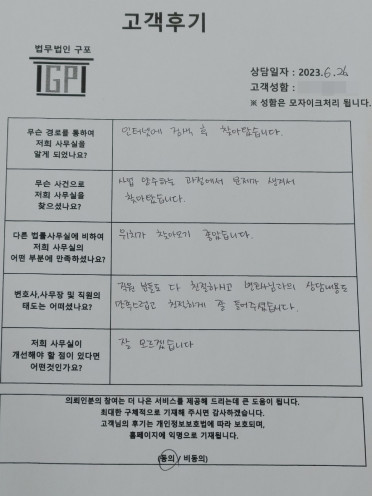 고객후기
법무법인 구포
GP
상담일자 : 2023.6.26
고객성함 :
※ 성함은 모자이크처리 됩니다.
무슨 경로를 통하여
저희 사무실을
알게 되었나요?
인터넷에 검색 후 찾아왔습니다.
무슨 사건으로
저희 사무실을
찾으셨나요?
사업 양수하는 과정에서 문제가 생겨서
찾아왔습니다.
다른 법률사무실에 비하여
저희 사무실의
어떤 부분에 만족하셨나요?
위치가 찾아오기 좋았습니다.
변호사,사무장 및 직원의
태도는 어떠셨나요?
직원 분들도 다 친절하시고 변호사님과의 상담내용도
만족스럽고 친절하게 잘 들어주셨습니다.
저희 사무실이
개선해야 할 점이 있다면
어떤것인가요?
잘 모르겠습니다
의뢰인분의 참여는 더 나은 서비스를 제공해 드리는데 큰 도움이 됩니다.
최대한 구체적으로 기재해 주시면 감사하겠습니다.
고객님의 후기는 개인정보보호법에 따라 보호되며,
홈페이지에 익명으로 기재됩니다.
(동의 / 비동의)